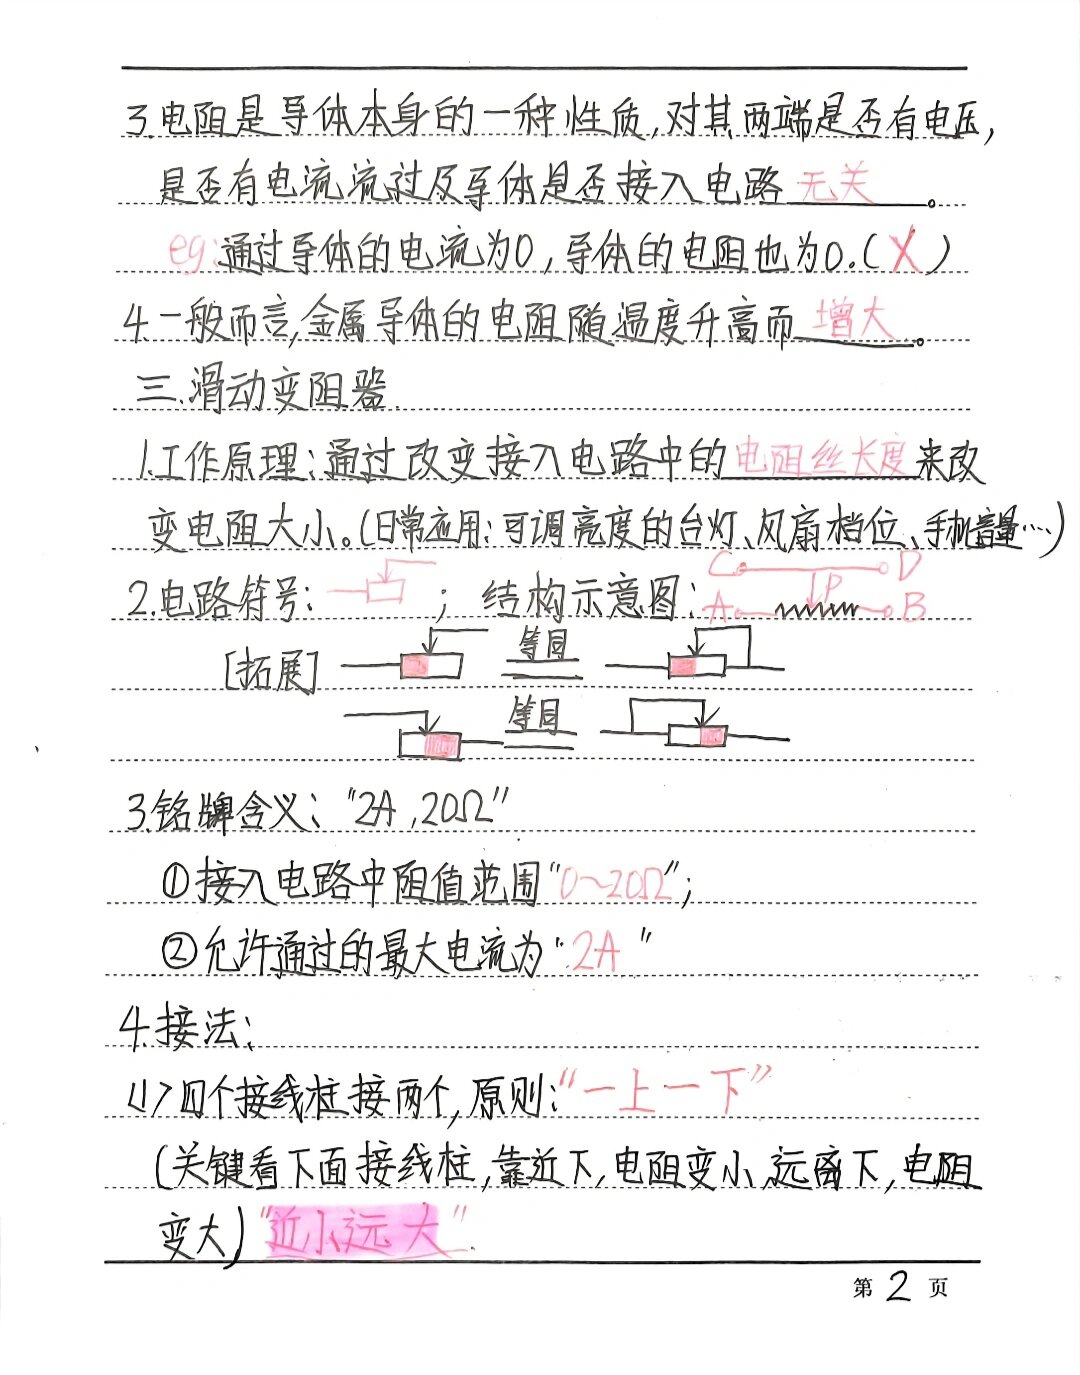 3.电阻是导体本身的一种性质,对其两端是否有电压,
是否有电流流过及导体是否接入电路 无关 。
eg:通过导体的电流为0,导体的电阻也为0.(X)
4.一般而言,金属导体的电阻随温度升高而 增大 。
三.滑动变阻器.
1.工作原理:通过改变接入电路中的电阻丝长度来改
变电阻大小。(日常应用:可调亮度的台灯、风扇档位、手机音量…)
2.电路符号: ; 结构示意图:
C D
P
A B
[拓展] 等同
等同
3.铭牌含义:"2A,20Ω"
①接入电路中阻值范围"0~20Ω";
②允许通过的最大电流为"2A"
4.接法:
(1)四个接线柱接两个,原则:"一上一下"
(关键看下面接线柱,靠近下,电阻变小,远离下,电阻
变大)"近小远大".
第 2 页